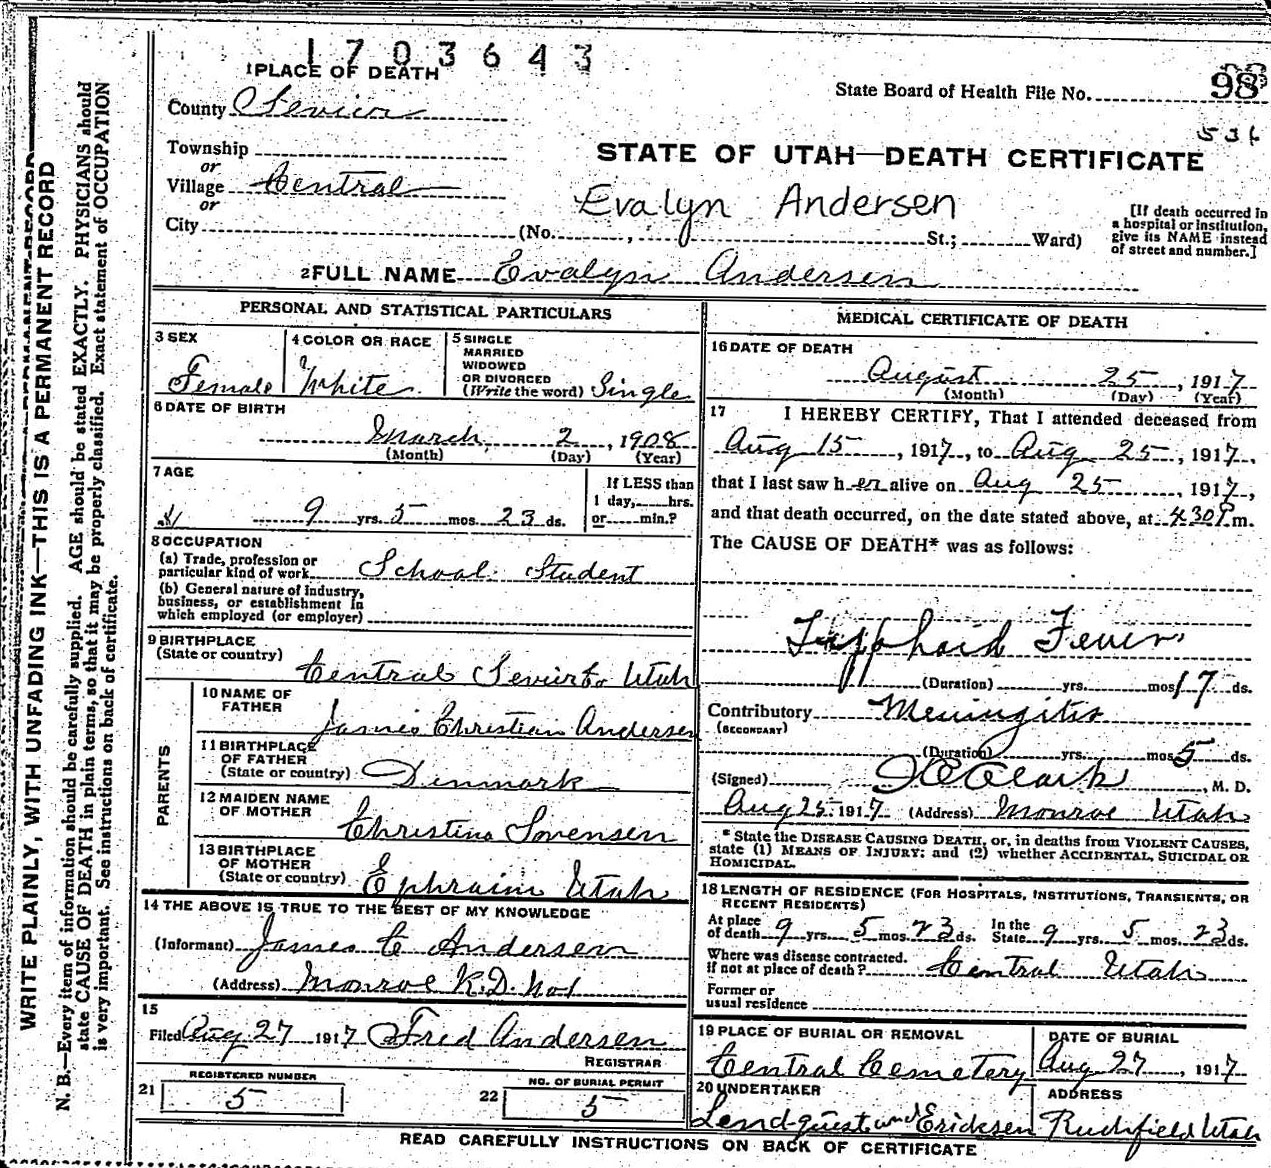 1703643
1 PLACE OF DEATH
State Board of Health File No. 98
County Sevier
536
Township
STATE OF UTAH—DEATH CERTIFICATE
or
Village Central
or
Evalyn Andersen
City (No. , St.; Ward)
[If death occurred in
a hospital or institution,
give its NAME instead
of street and number.]
2 FULL NAME Evalyn Andersen
PERSONAL AND STATISTICAL PARTICULARS
3 SEX
Female
4 COLOR OR RACE
White
5 SINGLE
MARRIED
WIDOWED
OR DIVORCED
(Write the word) Single
6 DATE OF BIRTH
March 2, 1908
(Month) (Day) (Year)
7 AGE
9 yrs. 5 mos. 23 ds.
If LESS than
1 day, hrs.
or min.?
8 OCCUPATION
(a) Trade, profession or
particular kind of work School Student
(b) General nature of industry,
business, or establishment in
which employed (or employer)
9 BIRTHPLACE
(State or country)
Central Sevier Co Utah
PARENTS
10 NAME OF
FATHER
James Christian Andersen
11 BIRTHPLACE
OF FATHER
(State or country) Denmark
12 MAIDEN NAME
OF MOTHER
Christina Sorensen
13 BIRTHPLACE
OF MOTHER
(State or country) Ephraim Utah
14 THE ABOVE IS TRUE TO THE BEST OF MY KNOWLEDGE
(Informant) James C Andersen
(Address) Monroe R.D. No 1
15
Filed Aug 27 1917 Fred Andersen
REGISTRAR
21 REGISTERED NUMBER
5
22 NO. OF BURIAL PERMIT
5
MEDICAL CERTIFICATE OF DEATH
16 DATE OF DEATH
August 25, 1917
(Month) (Day) (Year)
17 I HEREBY CERTIFY, That I attended deceased from
Aug 15, 1917, to Aug 25, 1917,
that I last saw h er alive on Aug 25, 1917,
and that death occurred, on the date stated above, at 4:30 P m.
The CAUSE OF DEATH* was as follows:
Typphoid Fever
(Duration) yrs. mos 17 ds.
Contributory Meningitis
(SECONDARY)
(Duration) yrs. mos 5 ds.
(Signed) Clark, M. D.
Aug 25 1917 (Address) Monroe Utah
* State the DISEASE CAUSING DEATH, or, in deaths from VIOLENT CAUSES,
state (1) MEANS OF INJURY; and (2) whether ACCIDENTAL, SUICIDAL OR
HOMICIDAL.
18 LENGTH OF RESIDENCE (FOR HOSPITALS, INSTITUTIONS, TRANSIENTS, OR
RECENT RESIDENTS)
At place
of death 9 yrs. 5 mos. 23 ds.
In the
State 9 yrs. 5 mos. 23 ds.
Where was disease contracted.
if not at place of death? Central Utah
Former or
usual residence
19 PLACE OF BURIAL OR REMOVAL
Central Cemetery
DATE OF BURIAL
Aug 27, 1917
20 UNDERTAKER
Lendquist and Ericksen
ADDRESS
Richfield Utah
READ CAREFULLY INSTRUCTIONS ON BACK OF CERTIFICATE
WRITE PLAINLY, WITH UNFADING INK—THIS IS A PERMANENT RECORD
N. B.—Every item of information should be carefully supplied. AGE should be stated EXACTLY. PHYSICIANS should
state CAUSE OF DEATH in plain terms, so that it may be properly classified. Exact statement of OCCUPATION
is very important. See instructions on back of certificate.